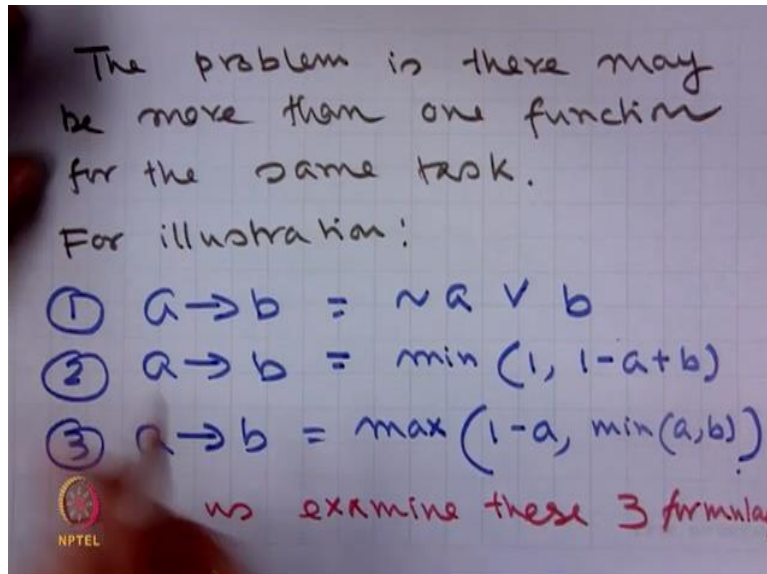 The problem is there may
be more than one function
for the same task.
For illustration:
① a → b = ~a ∨ b
② a → b = min (1, 1-a+b)
③ a → b = max (1-a, min(a,b))
us examine these 3 formula
NPTEL